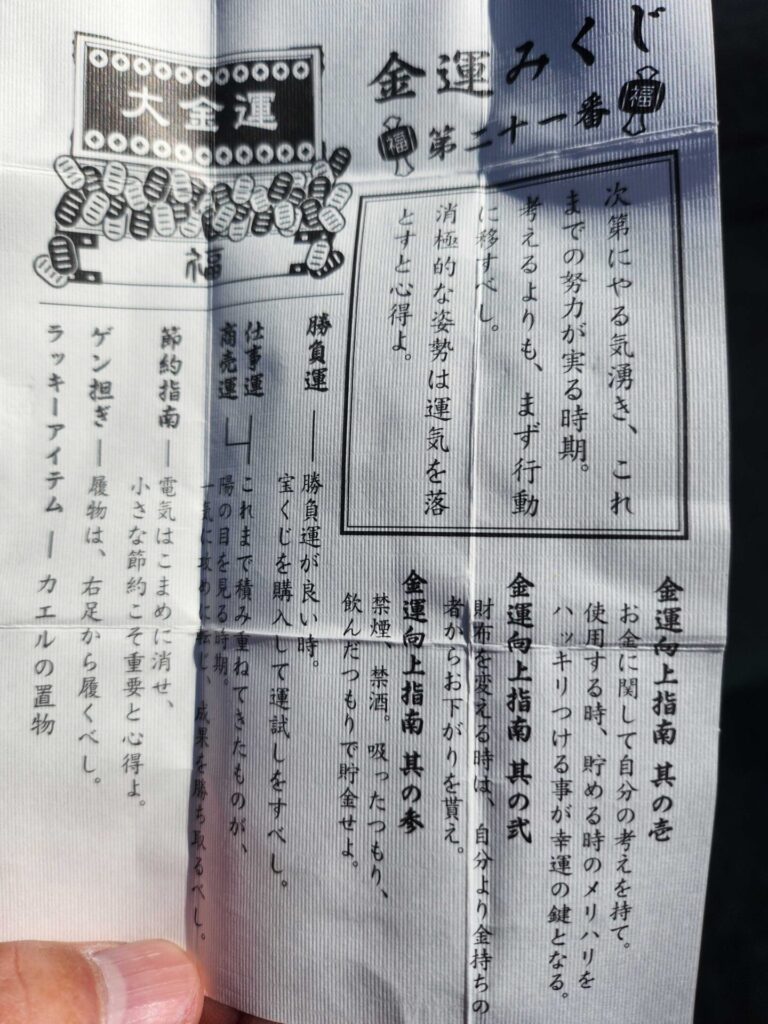 金運みくじ
福
第二十一番
福
次第にやる気湧き、これ
までの努力が実る時期。
考えるよりも、まず行動
に移すべし。
消極的な姿勢は運気を落
とすと心得よ。
大金運
福
金運向上指南 其の壱
お金に関して自分の考えを持て。
使用する時、貯める時のメリハリを
ハッキリつける事が幸運の鍵となる。
金運向上指南 其の弐
財布を変える時は、自分より金持ちの
者からお下がりを貰え。
金運向上指南 其の参
禁煙、禁酒。吸ったつもり、
飲んだつもりで貯金せよ。
勝負運 ― 勝負運が良い時。
宝くじを購入して運試しをすべし。
仕事運
商売運
これまで積み重ねてきたものが、
陽の目を見る時期。
一気に攻めに転じ、成果を勝ち取るべし。
節約指南 ― 電気はこまめに消せ、
小さな節約こそ重要と心得よ。
ゲン担ぎ ― 履物は、右足から履くべし。
ラッキーアイテム ― カエルの置物